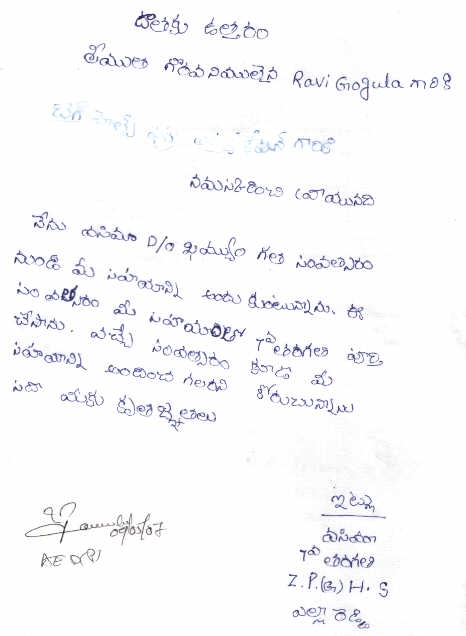 దాతకు ఉత్తరం
శ్రీయుత గౌరవనీయులైన Ravi Gogula గారికి
గారికి
నమస్కరించి వ్రాయునది
నేను D/o గత సంవత్సరం
నుండి మీ సహాయాన్ని అందుకుంటున్నాను. ఈ
సంవత్సరం మీ సహాయంతో 7వ తరగతి పూర్తి
చేసాను. వచ్చే సంవత్సరం కూడా మీ
సహాయాన్ని అందించ గలరని కోరుచున్నాను
సదా మీకు కృతజ్ఞతలు
ఇట్లు
7వ తరగతి
Z.P.(G) H.S
ఎల్లా రెడ్డి
09/03/07